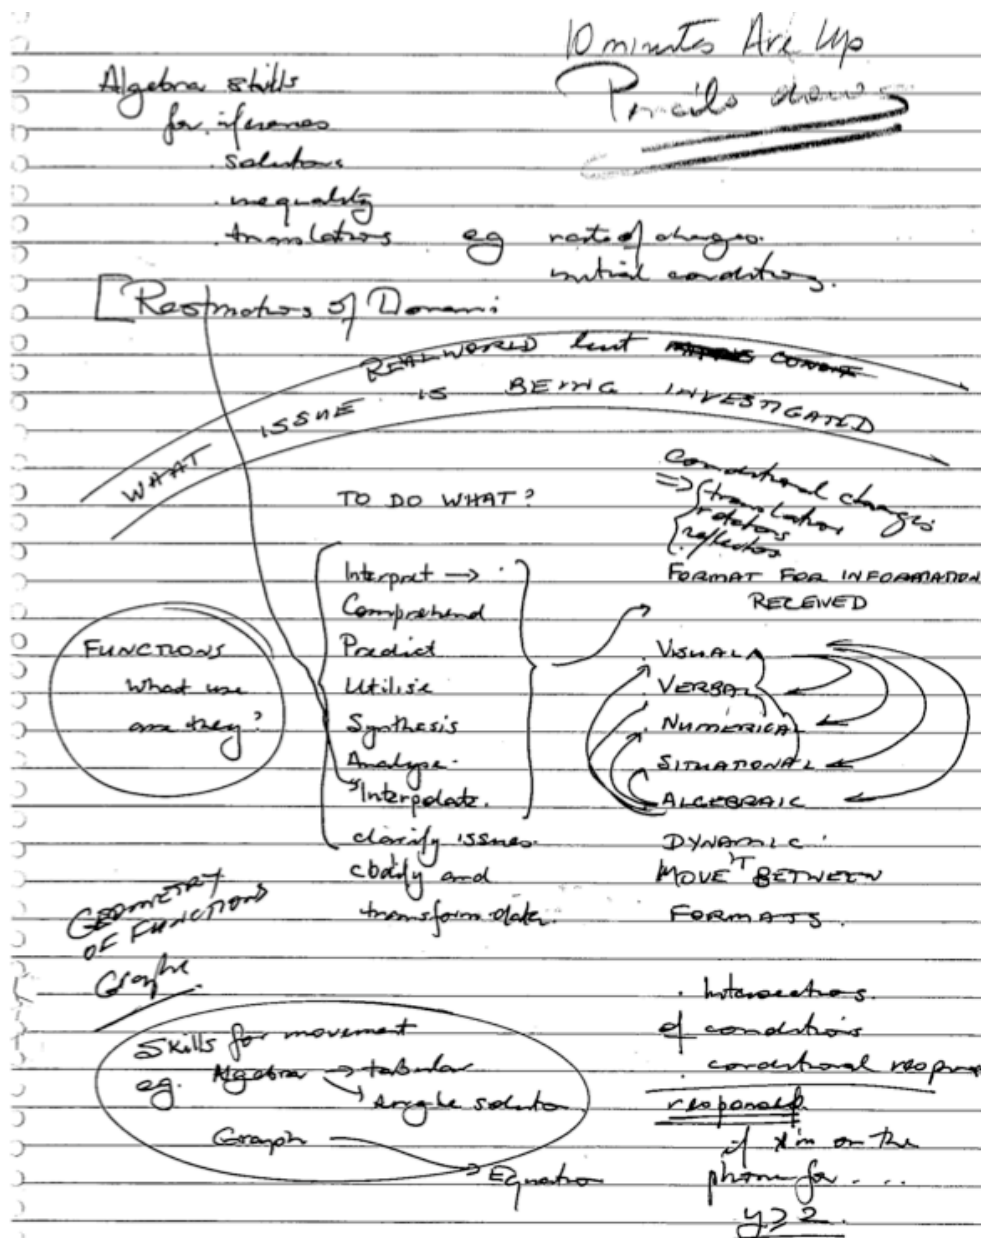 10 minutes Are Up
Pencils down
Algebra skills
for inferences
. solutions
. inequality
. translations eg rate of changes.
initial conditions.
[Restrictions of Domain:
REAL WORLD
WHAT ISSUE IS BEING INVESTIGATED
Conditional changes
=> { translation
rotations
reflection
TO DO WHAT?
FORMAT FOR INFORMATION
RECEIVED
Interpret →
Comprehend
Predict
Utilise
Synthesis
Analyse.
Interpolate.
clarify issues.
codify and
transform data.
FUNCTIONS
What use
are they?
. VISUAL
. VERBAL
. NUMERICAL
. SITUATIONAL
. ALGEBRAIC
DYNAMIC.
MOVE 'T BETWEEN
FORMATS.
GEOMETRY
OF FUNCTIONS
Graphs
Skills for movement
eg. Algebra → tabular
→ single solution
Graph → Equation
. Intersections.
of conditions
. conditional response
response.
if I'm on the
phone for ....
y ≥ 2.